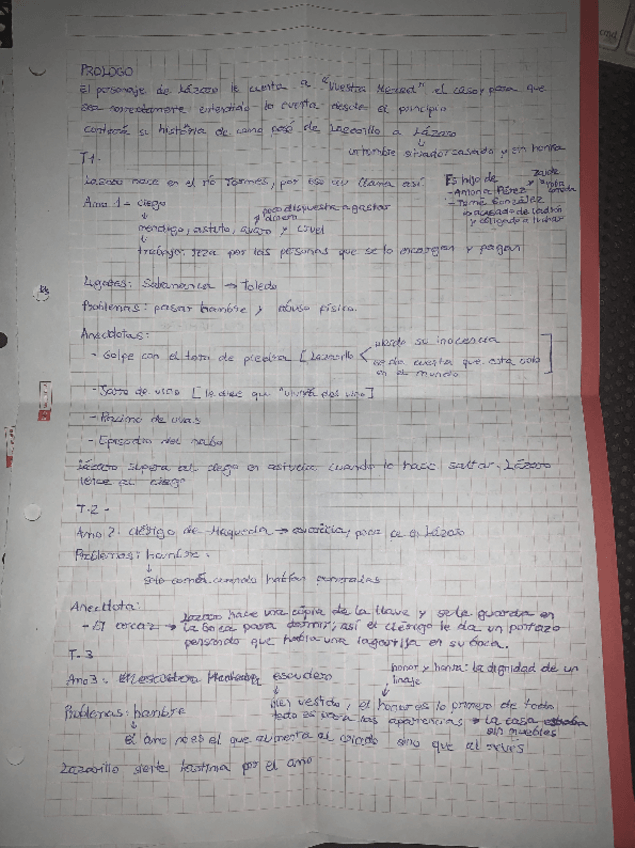 PROLOGO
El personaje de Lázaro le cuenta a "Vuestra Merced" el caso y para que
sea correctamente entendido lo cuenta desde el principio
contará su história de como pasó de Lazarillo a Lázaro
↓
un hombre situado, casado y sin honra
T1-
Lázaro nace en el río Tormes, por eso se llama así
Es hijo de
- Antona Pérez
- Tomé González
↳ acusado de ladrón
y obligado a luchar
Amo 1 → ciego
poco dispuesto a gastar
dinero
↓
mendigo, astuto, avaro y cruel
↓
trabajo: reza por las personas que se lo encargan y pagan
Lugares: Salamanca → Toledo
Problemas: pasar hambre y abuso físico
Anecdotas:
- Golpe con el toro de piedra [Lazarillo
pierde su inocencia
se da cuenta que esta solo
en el mundo
- Jarro de vino [le dices que "vivirá del vino]
- Racimo de uvas
- Episodio del nabo
Lázaro supera al ciego en astucia cuando le hace saltar. Lázaro
vence al ciego
T.2-
Amo 2: clérigo de Maqueda → avaricia,
Problemas: hambre.
↓
solo comía cuando habían funerales
Anecdota:
- El → Lázaro hace una cópia de la llave y se la guarda en
la boca para dormir, así el clérigo le da un portazo
pensando que había una lagartija en su boca.
T.3
Amo 3: escudero
honor y honra: la dignidad de un
linaje
bien vestido, el honor es lo primero de todo
todo es las apariencias → la casa
sin muebles
Problemas: hambre
↓
El amo no es el que alimenta al criado sino que al revés
Lazarillo siente lastima por el amo